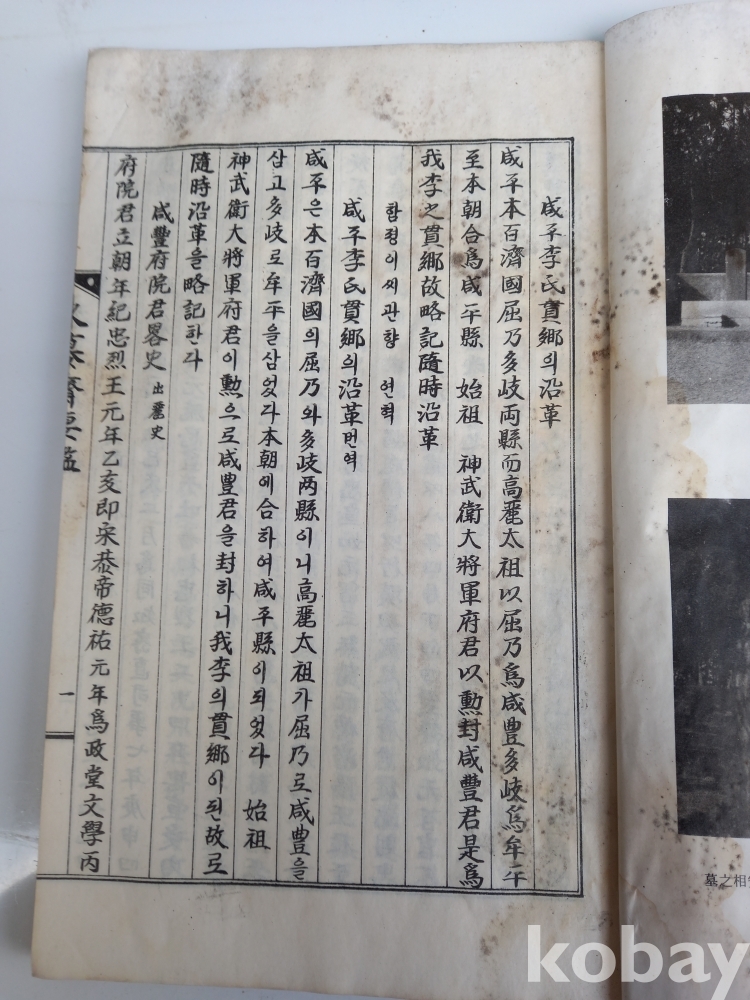 咸平李氏貫鄕의沿革
咸平本百濟國屈乃多岐両縣而高麗太祖以屈乃爲咸豊多岐爲牟平
至本朝合爲咸平縣 始祖 神武衛大將軍府君以勲封咸豊君是爲
我李之貫鄕故略記隨時沿革
함평이씨관향 연혁
咸平李氏貫鄕의沿革번역
咸平은本百濟國의屈乃와多岐両縣이니高麗太祖가屈乃로咸豊을
삼고多岐로牟平을삼었다本朝에合하여咸平縣이되었다 始祖
神武衛大將軍府君이勲으로咸豊君을封하니我李의貫鄕이된故로
隨時沿革을略記한다
咸豊府院君畧史 出麗史
府院君立朝年紀忠烈王元年乙亥即宋恭帝德祐元年爲政堂文學丙
一
墓之相
kobay